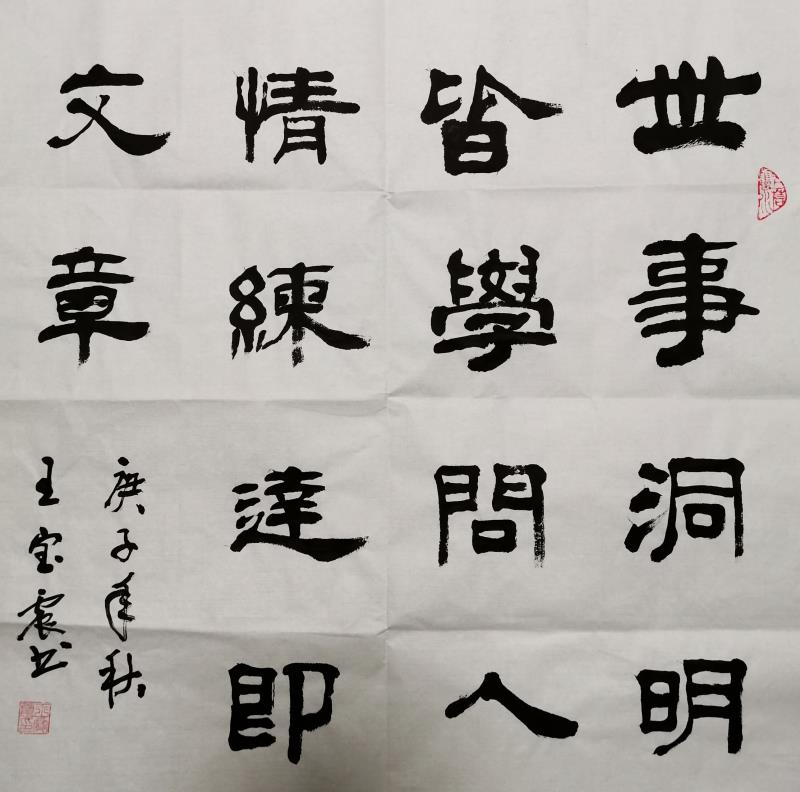 世事洞明
皆學問人
情練達即
文章
庚子年秋
王宝震书